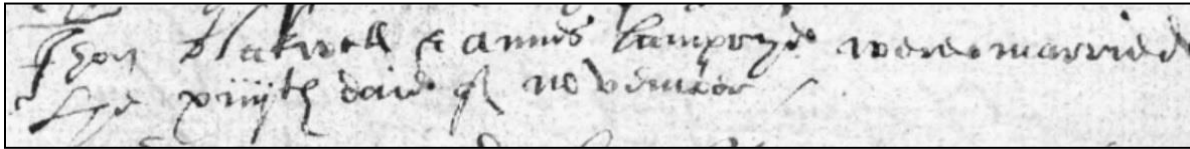 Jhon Blakwell & annes Lamprye were married
the xiiijth daie of november